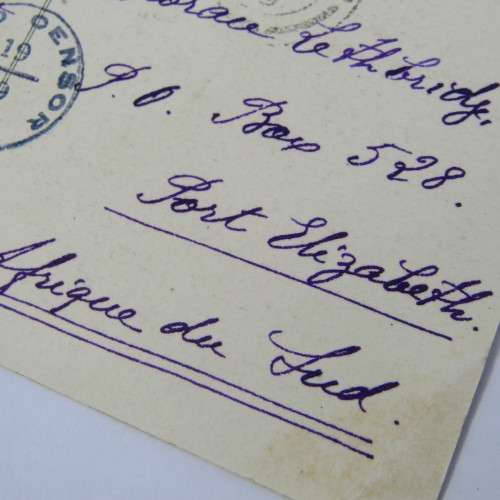 CENSOR
19
Lethbridge,
P.O. Box 528.
Port Elizabeth.
Afrique du Sud.